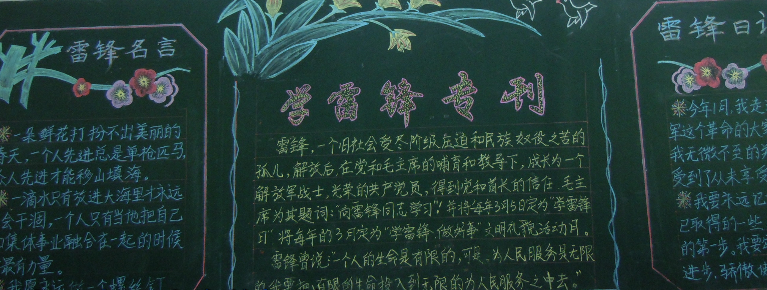 雷锋名言
※一朵鲜花打扮不出美丽的
春天,一个人先进总是单枪匹马,
众人先进才能移山填海。
※一滴水只有放进大海里才永远
会干涸,一个人只有当他把自己
集体事业融合在一起的时候
最有力量。
一个螺丝钉
学雷锋专刊
雷锋,一个旧社会受尽阶级压迫和民族奴役之苦的
孤儿,解放后,在党和毛主席的哺育和教导下,成长为一个
解放军战士,光荣的共产党员,得到党和首长的信任。毛主
席为其题词:“向雷锋同志学习”!并将每年3月5日定为“学雷锋
日”将每年的3月定为“学雷锋、做好事”文明礼貌活动月。
雷锋曾说:“一个人的生命是有限的,可是,为人民服务是无限
的我要把有限的生命投入到无限的为人民服务之中去。”
雷锋日记
※今年1月,我走
军这个革命的大
我无微不至的
受到了从未享受
※我要永远记
已取得的一些
的第一步。我要
进步,骄傲使